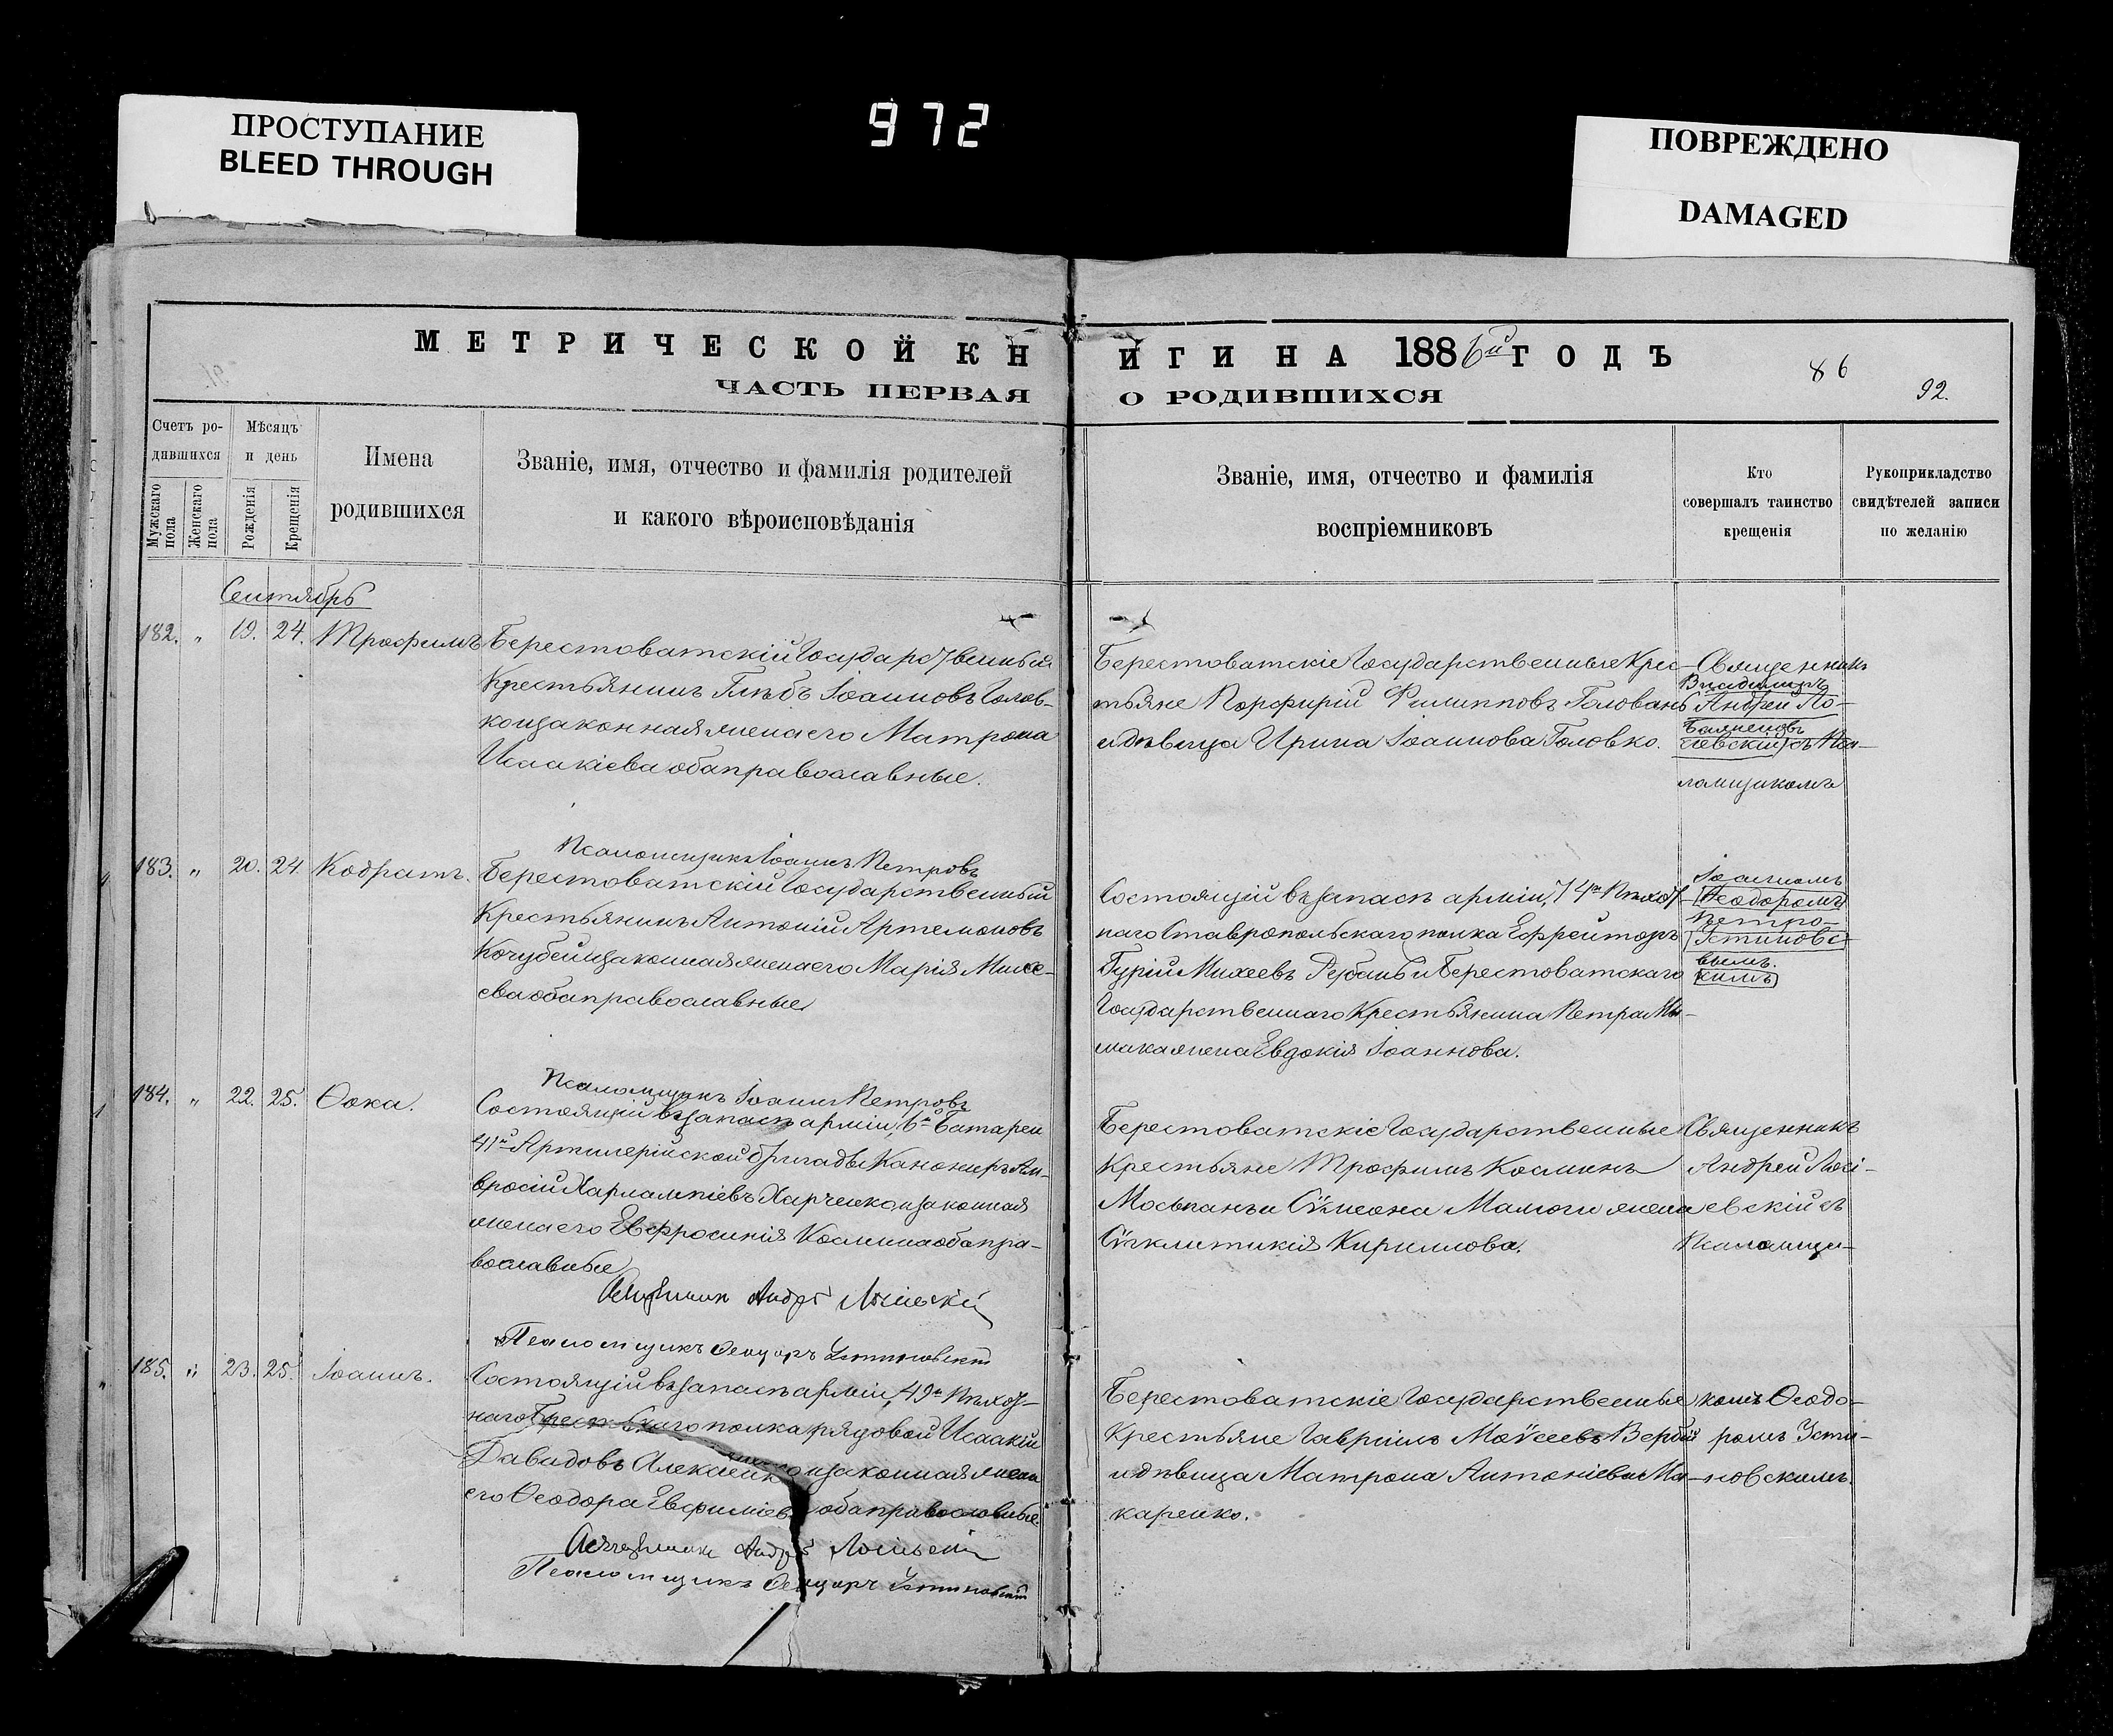 ПРОСТУПАНИЕ
BLEED THROUGH
972
ПОВРЕЖДЕНО
DAMAGED
МЕТРИЧЕСКОЙ КНИГИ НА 1886й ГОДЪ
86
92.
ЧАСТЬ ПЕРВАЯ О РОДИВШИХСЯ
Счетъ родившихся
Мужскаго пола
Женскаго пола
Мѣсяцъ и день
Рожденія
Крещенія
Имена родившихся
Званіе, имя, отчество и фамилія родителей
и какого вѣроисповѣданія
Званіе, имя, отчество и фамилія
воспріемниковъ
Кто
совершалъ таинство
крещенія
Рукоприкладство
свидѣтелей записи
по желанію
Сентябрь
182. „ 19. 24. Трофимъ
Берестоватскій Государственный
Крестьянинъ Глѣбъ Іоанновъ Голов-
ко и законная жена его Матрона
Исаакіева оба православные.
Берестоватскіе Государственные Крес-
тьяне Порфирій Филипповъ Головань
и дѣвица Ирина Іоаннова Головко.
Священникъ
Владимиръ
Андрей Ло-
Баляновъ
гіевскій съ Пса-
ломщикомъ
Псаломщикъ Іоаннъ Петровъ
183. „ 20. 24. Кодратъ.
Берестоватскій Государственный
Крестьянинъ Антоній Артемоновъ
Кочубей и законная жена его Марія Михе-
ева оба православные
Состоящій въ запасѣ арміи, 74го Пѣхот-
наго Ставропольскаго полка Ефрейторъ
Гурій Михеевъ Рубанъ и Берестоватскаго
Государственнаго Крестьянина Петра
жена Евдокія Іоаннова.
Іоанномъ
Ѳеодоромъ
Петро-
Устиновс-
вымъ.
кимъ
Псаломщикъ Іоаннъ Петровъ
184. „ 22. 25. Ѳока.
Состоящій въ запасѣ арміи, 6й Батареи
41й Артилерійской бригады Канониръ Ам-
вросій Харлампіевъ Харченко и законная
жена его Евфросинія Космина оба пра-
вославные
Берестоватскіе Государственные
Крестьяне Трофимъ Косминъ
Моспанъ и Сѵмеона Мамоги жена
Сѵгклитикія Кириллова.
Священникъ
Андрей Логі-
евскій съ
Псаломщи-
Священникъ Андрей
Псаломщикъ Ѳеодоръ Устиновскій
185. „ 23. 25. Іоаннъ.
Состоящій въ запасѣ арміи, 49го Пѣхот-
наго Брестскаго полка рядовой Исаакій
Давидовъ Алексѣенко и законная жена
его Ѳеодора Евфиміева оба православные.
Берестоватскіе Государственные
Крестьяне Гавріилъ Моѵсеевъ Вербій
и дѣвица Матрона Антоніева Ма-
каренко.
комъ Ѳеодо-
ромъ Усти-
новскимъ.
Священникъ Андрей
Псаломщикъ Ѳеодоръ Устиновскій